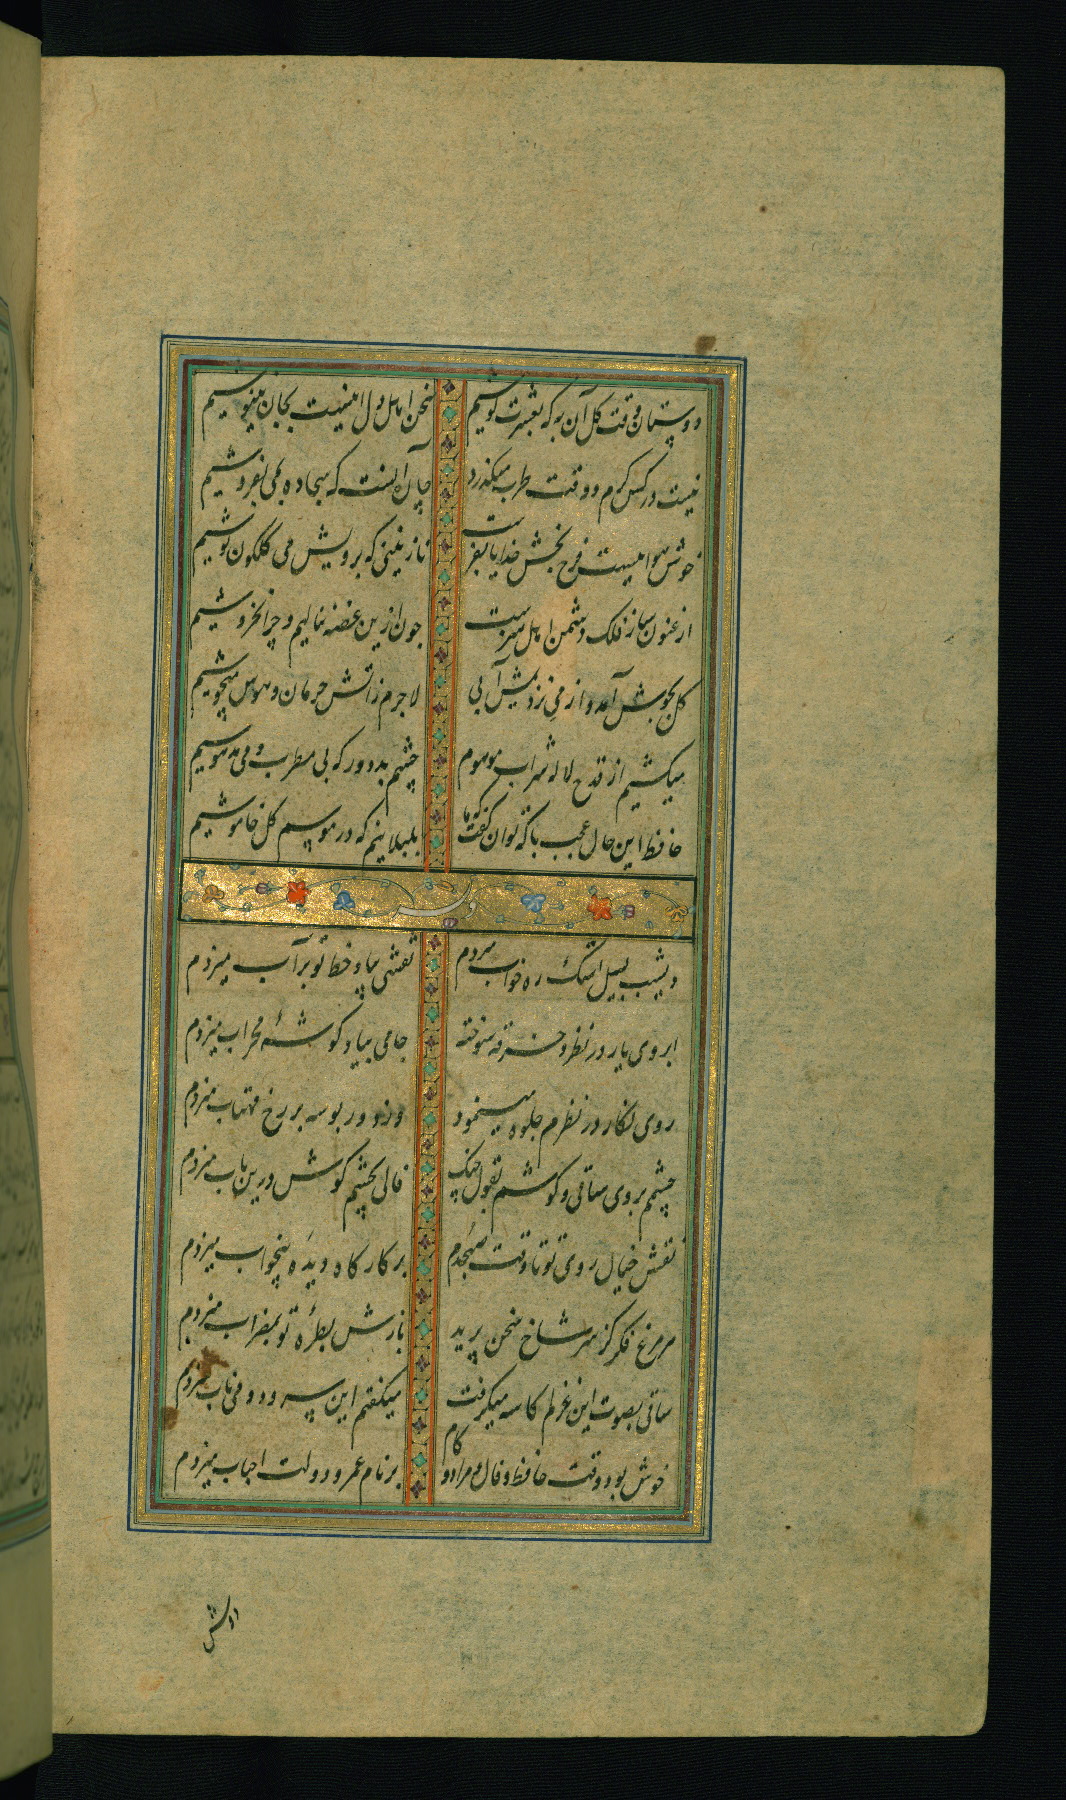 دوستان وقت گل آن به که بعشرت کوشیم سخن اهل دل اینست بجان بنیوشیم
نیست در کس کرم و وقت طرب میگذرد چاره آنست که سجاده بمی بفروشیم
خوش هواییست فرح بخش خدایا بفرست نازنینی که برویش می گلگون نوشیم
ارغنون ساز فلک دشمن اهل هنرست چون ازین غصه ننالیم و چرا نخروشیم
گل بجوش آمد و از می نزدیمش آبی لاجرم زآتش حرمان و هوس میجوشیم
میکشیم از قدح لاله شراب موهوم چشم بد دور که بی مطرب و می مدهوشیم
حافظ این حال عجب با که توان گفت که ما بلبلانیم که در موسم گل خاموشیم
وله
دیشب بسیل اشک ره خواب میزدم نقشی بیاد خط تو بر آب میزدم
ابروی یار در نظر و خرقه سوخته جامی بیاد گوشهٔ محراب میزدم
روی نگار در نظرم جلوه مینمود وز دور بوسه بر رخ مهتاب میزدم
چشمم بروی ساقی و گوشم بقول چنگ فالی بچشم و گوش درین باب میزدم
نقش خیال روی تو تا وقت صبحدم بر کارگاه دیدهٔ بیخواب میزدم
هر مرغ فکر کز سر شاخ سخن پرید بازش بطرهٔ تو بمضراب میزدم
ساقی بصوت این غزلم کاسه میگرفت میگفتم این سرود و می ناب میزدم
خوش بود وقت حافظ و فال مراد و کام بر نام عمر و دولت احباب میزدم
دوش